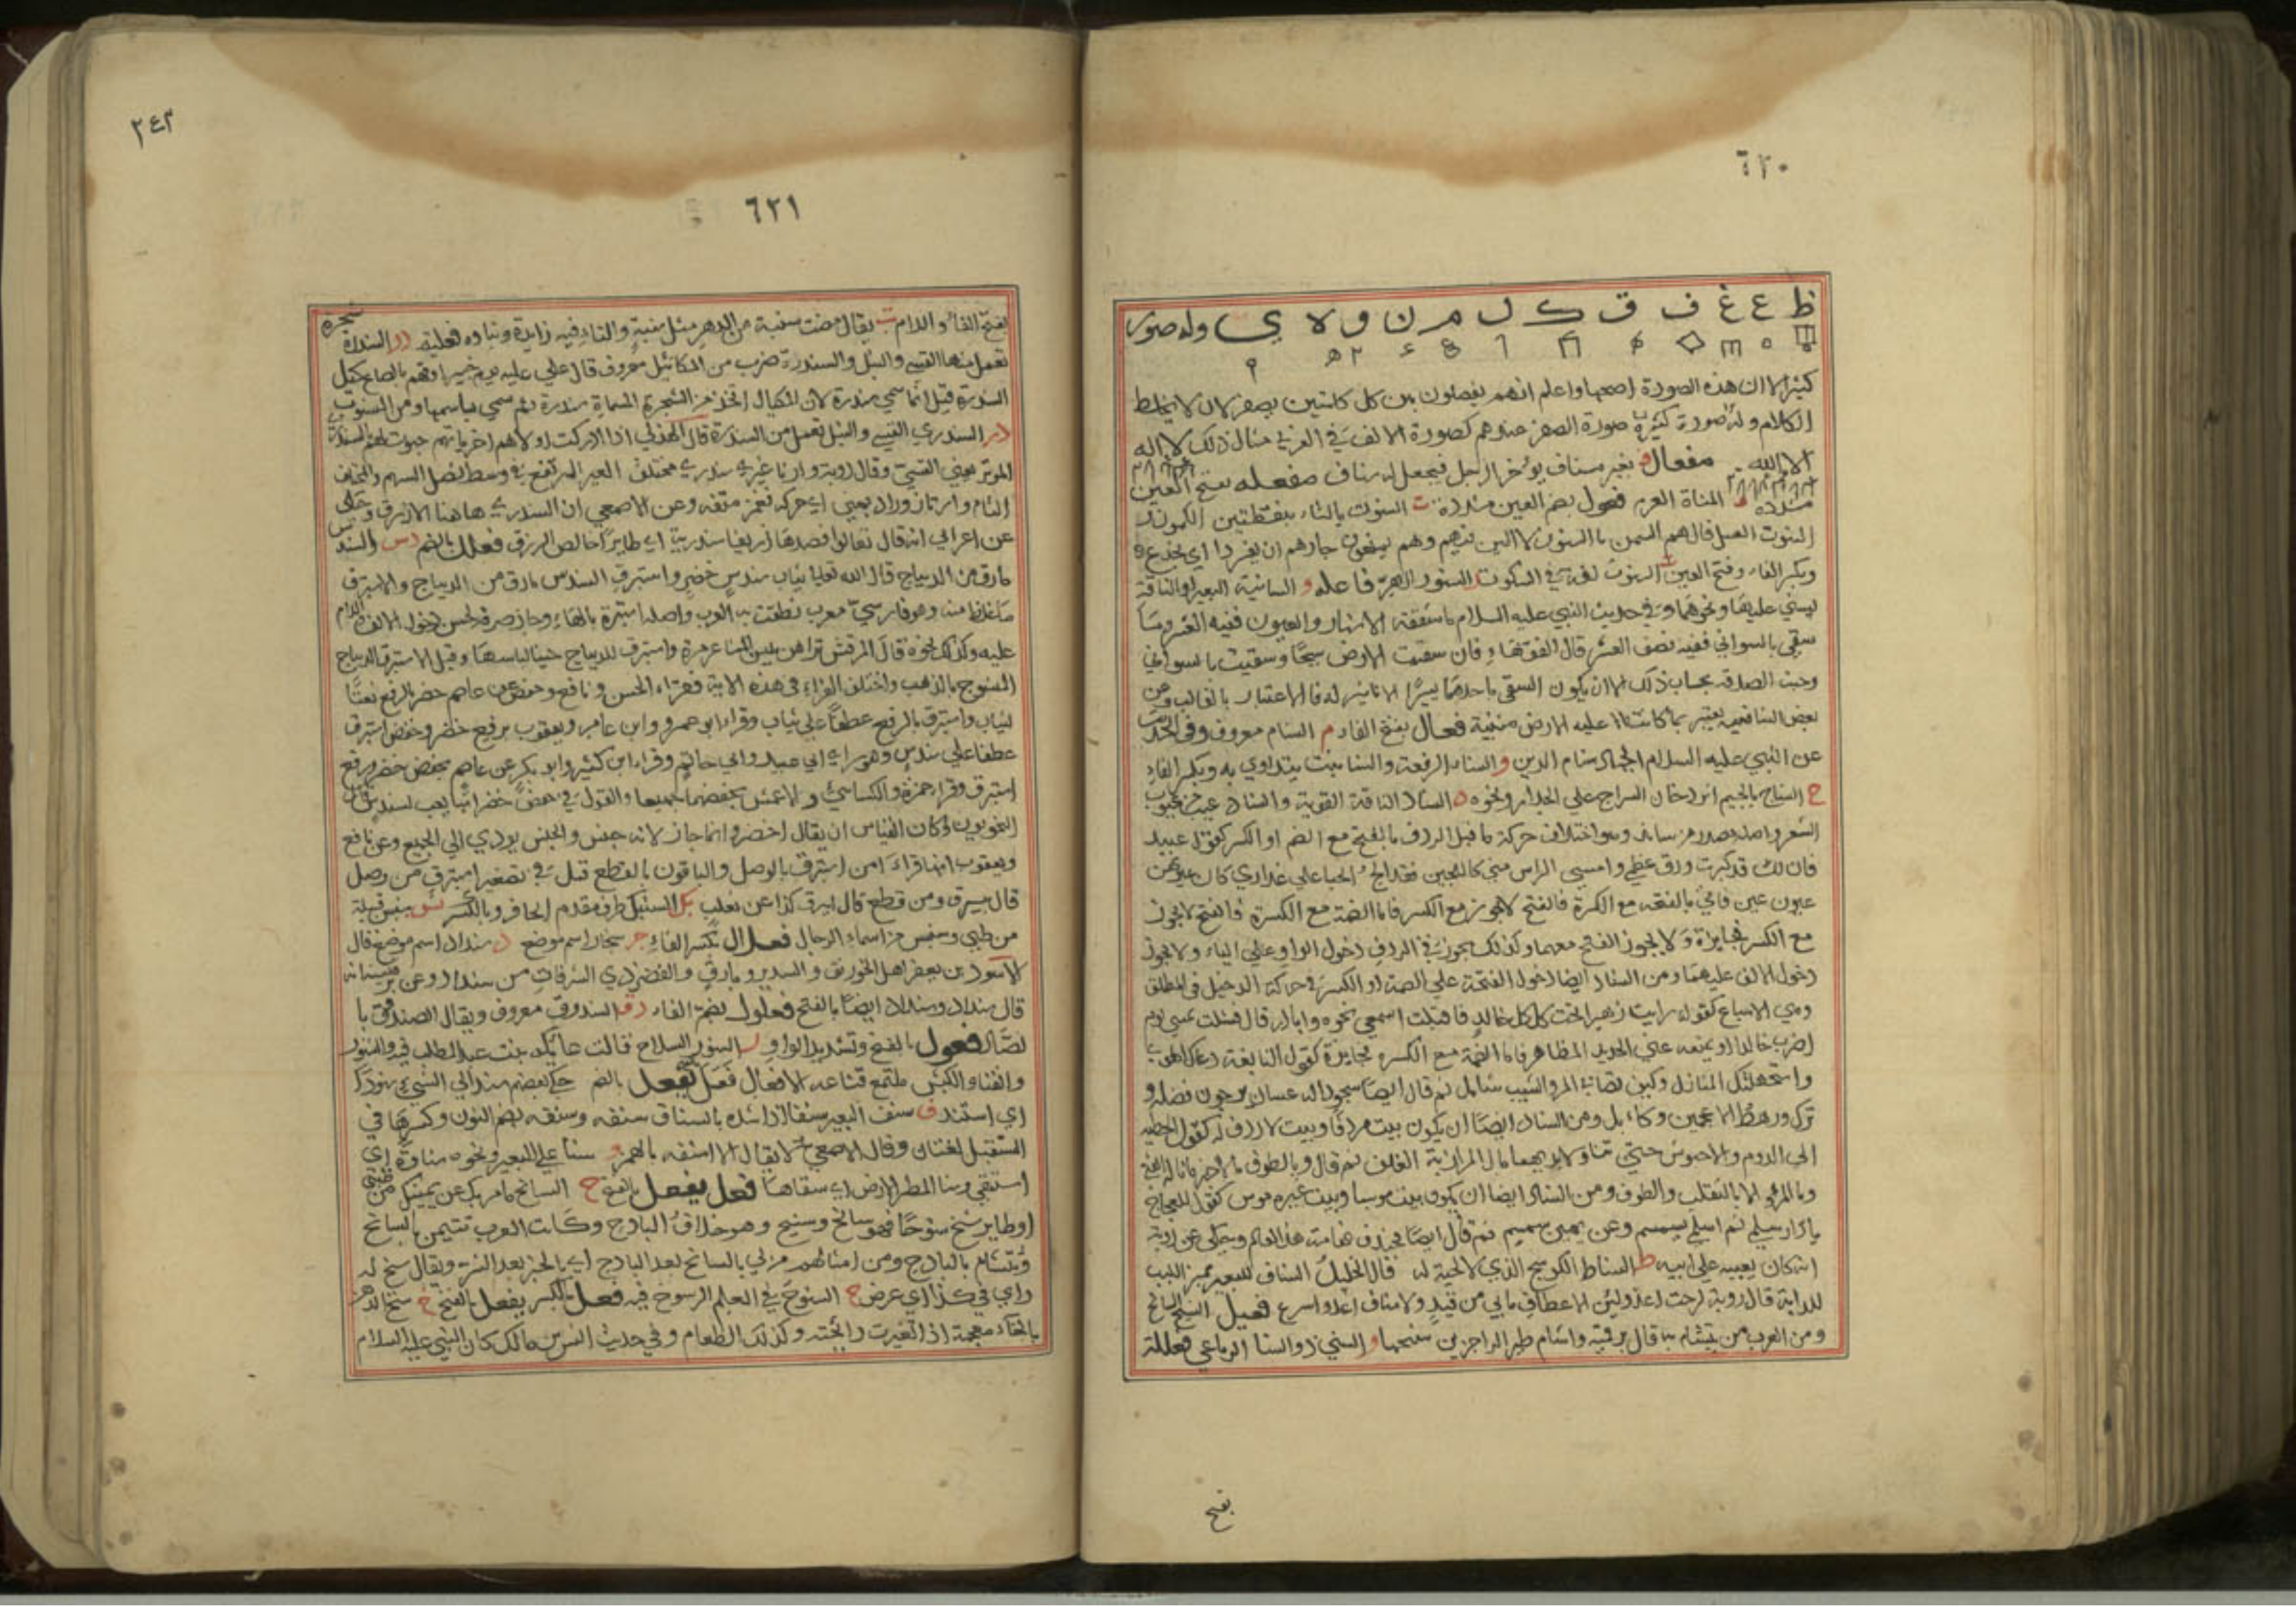 ٦٢٠
ظ ع غ ف ق ك ل م ن و لا ي وله صور
كثيرة الا ان هذه الصورة اصحها واعلم انهم يفصلون بين كل كلمتين بصفر لان لا يختلط
الكلام وله صورة كثيرة صورة الصفر عندهم كصورة الالف في العربي مثال ذلك لا اله
الا الله مفعال ف بعير مسناف يؤخر الرحل فيجعل له سناف مفعله بفتح العين
مشدده المسناة العرم فعول بضم العين مشددة ت السنوت بالتاء بنقطتين الكمون و
السنوت العسل قال هم السمن بالسنوت لا الس فيهم وهم يمنعون جارهم ان يقردا اي يخدع
وبكسر الفاء وفتح العين السنوت لغة في السنوت ر السنور الهر فاعله و السانية البعير او الناقة
يسنى عليها ونحوهما وفي حديث النبي عليه السلام ما سقته الانهار والعيون ففيه العشر وما
سقي بالسواني ففيه نصف العشر قال الفقهاء فان سقيت الارض سيحا وسقيت بالسواني
وجبت الصدقة بحساب ذلك الا ان يكون السقي باحدهما يسيرا لا تاثير له فالاعتبار بالغالب وعن
بعض الشافعيه يعتبر بما كانت عليه الارض مبنية فعال بفتح الفاء م السنام معروف وفي الحديث
عن النبي عليه السلام الجهاد سنام الدين و السناء الرفعة والسنا نبت يتداوى به وبكسر الفاء
ج السناج بالجيم اثر دخان السراج على الجدار ونحوه د السناد الناقة القوية والسناد عيب من عيوب
الشعر واصله مصدر من ساند وهو اختلاف حركة ما قبل الردف بالفتح مع الضم او الكسر كقول عبيد
فان يك قد كبرت ورق عظمي وامسى الراس مني كاللجين فقد الج الحباء على عذارى كان عيونهن
عيون عين فاتى بالفتحة مع الكسرة فالفتح لا يجوز مع الكسر فاما الضمة مع الكسرة فالفتح لا يجوز
مع الكسر فجايزة ولا يجوز الفتح معهما وكذلك يجوز في الردف دخول الواو على الياء ولا يجوز
دخول الالف عليهما ومن السناد ايضا دخول الفتحة على الضمة او الكسرة في حركة الدخيل في المطلق
وهي الاشباع كقوله رايت زهيرا تحت كلكل خالد فاقبلت اسعى نحوه وابادر قال فشلت يميني يوم
اضرب خالدا ويمنعه مني الحديد المظاهر فاما الضمة مع الكسرة فجايزة كقول النابغة دعاك الهوى
واستجهلتك المنازل وكيف تصابي المرء والشيب شامل ثم قال ايضا سجود له غسان يرجون فضله و
ترك ورهط الاعجمين وكابل ومن السناد ايضا ان يكون بيت مردفا وبيت لا ردف له كقول الحطيه
الى الروم والاحبوش حتى تناولا بايديهما مال المرازبة الغلف ثم قال وبالطوف نالا خير ما ناله الفتى
وما المرء الا بالتقلب والطوف ومن السناد ايضا ان يكون بيت مؤسسا وبيت غير مؤسس كقول العجاج
يا دار سلمى ثم اسلمى بسمسم وعن يمين سمسم ثم قال ايضا فخندف هامة هذا العالم ويحكى عن رؤبة
انه كان يعيبه على ابيه ط السناط الكوسج الذي لا لحية له قال الخليل السناف للبعير بمنزلة اللبب
للدابة قال رؤبة لرحت اعدو لين الاعطاف ما بي من قيد ولا سناف اعدو اسرع فعيل السنيح السانح
ومن العرب من يتشام به قال برقيه واشام طير الزاجرين سنيحها و السني ذو السنا الرباعي فعللة
بفتح
٢٤٣
٦٢١
بفتح الفاء واللام ب يقال مضت سنبة من الدهر مثل سنبة والتاء فيه زايدة وبناوه فعلته در السندرة شجرة
تعمل منها القسي والنبل والسندرة ضرب من المكائيل معروف قال علي عليه يوم خيبر اوفيهم بالصاع كيل
السندرة قيل انما سمي سندرة لان المكيال اتخذ من الشجرة المسماة سندرة ثم سمي باسمها ومن المنسوب
در السندري القسي والنبل تعمل من السندرة قال الهذلي اذا ادركت اولاهم اخرياتهم حبوت لهم بالسندري
الموتر يعني القسي وقال رؤبة وارتاز غيري سندري مختلق العير المرتفع في وسط نصل السهم والمختلق
التام وارتاز وراز بمعنى اي حركه نغمز متنه وعن الاصمعي ان السندري هاهنا الازرق وحكى
عن اعرابي انه قال تعالوا فصدها زريقا سندريا اي طايرا خالص الزرق فعلل بالضم دس السندس
مارق من الديباج قال الله تعالى ثياب سندس خضر واستبرق السندس مارق من الديباج والاستبرق
ما غلظ منه وهو فارسي معرب نطقت به العرب واصله استبرة بالهاء وجاز صرفه لحسن دخول الالف واللام
عليه وكذلك نحوه قال المرقش تراهن يلبسن المشاعر مرة واستبرق الديباج حينا لباسها وقيل الاستبرق الديباج
المنسوج بالذهب واختلف القراء في هذه الاية فقراء الحسن ونافع وحفص عن عاصم خضر بالرفع نعتا
لثياب واستبرق بالرفع عطفا على ثياب وقراء ابو عمرو وابن عامر ويعقوب برفع خضر وخفض استبرق
عطفا على سندس وهو راي ابي عبيد وابي حاتم وقراء ابن كثير وابو بكر عن عاصم بخفض خضر ورفع
استبرق وقراء حمزة والكسائي والاعمش بخفضهما جميعا والقول في خفض خضر انما يجب لسندس قال
النحويون وكان القياس ان يقال اخضر وانما جاز لانه جنس والجنس يودي الى الجميع وعن نافع
ويعقوب انهما قراءا من استبرق بالوصل والباقون بالقطع قيل في تصغير استبرق من وصل
قال سبيرق ومن قطع قال ابيرق كذا عن ثعلب بك السنبك طرف مقدم الحافر وبالكسر بس سنبس قبيلة
من طي وسنبس من اسماء الرجال فعلال بكسر الفاء جر سنجار اسم موضع د سنداد اسم موضع قال
الاسود بن يعفر اهل الخورنق والسدير وبارق والقصر ذي الشرفات من سنداد وعن بعضهم انه
قال سنداد وسنداد ايضا بالفتح فعلول بضم الفاء دق السندوق معروف ويقال الصندوق با
لصاد فعول بالفتح وتشديد الواو ر السنور السلاح قالت عاتكة بنت عبد المطلب فيه السنور
والقنا والكبش ملتمع قناعه الافعال فعل يفعل بالضم حكى بعضهم سند الى الشيء سنودا
اي استند ف سنف البعير سنفا اذا شده بالسناف سنفه وسنفه بضم النون وكسرها في
المستقبل لغتان وقال الاصمعي لا يقال الا اسنفه بالهمز و سنا على البعير ونحوه سناوة اي
استقى وسنا المطر الارض اي سقاها فعل يفعل بالفتح ح السانح ما مر بك عن يمينك من ظبي
او طاير سنح سنوحا فهو سانح وسنيح وهو خلاف البارح وكانت العرب تتيمن بالسانح
وتتشام بالبارح ومن امثالهم من لي بالسانح بعد البارح اي بالخير بعد الشر ويقال سنح له
راي في كذا اي عرض خ السنوخ في العلم الرسوخ فيه فعل بالكسر يفعل بالفتح خ سنخ الدهن
بالخاء معجمة اذا تغيرت رائحته وكذلك الطعام وفي حديث انس بن مالك كان النبي عليه السلام